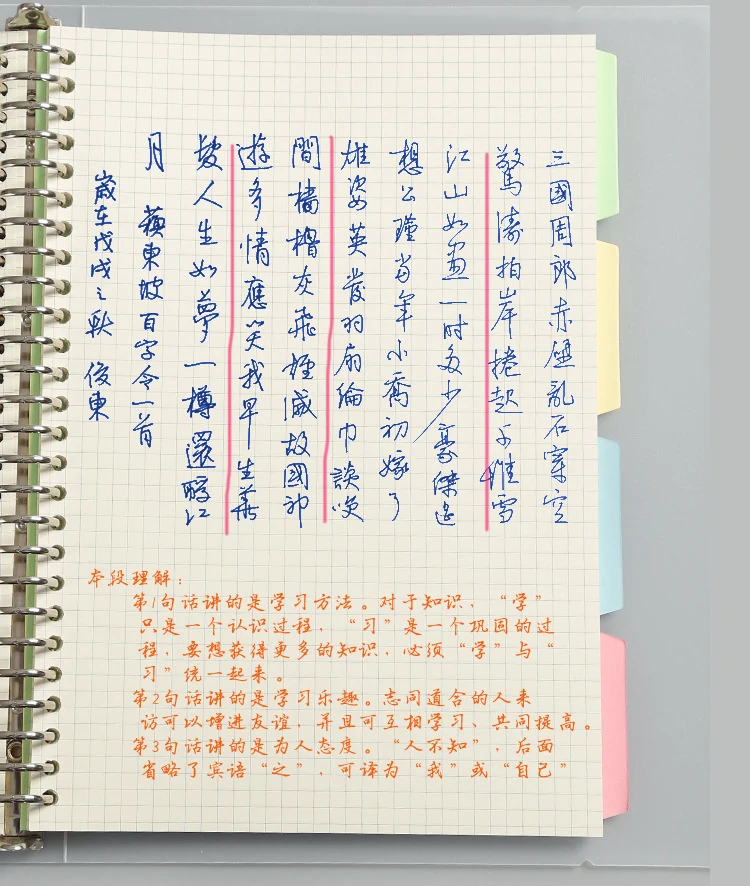 三國周郎赤壁乱石穿空
驚濤拍岸捲起千堆雪
江山如畫一时多少豪傑遙
想公瑾当年小喬初嫁了
雄姿英發羽扇綸巾談笑
間檣櫓灰飛煙滅故國神
遊多情應笑我早生華
髮人生如夢一樽還酹江
月 蘇東坡百字令一首
歲在戊戌之秋 俊東
本段理解：
第1句话讲的是学习方法。对于知识，“学”
只是一个认识过程，“习”是一个巩固的过
程，要想获得更多的知识，必须“学”与“
习”统一起来。
第2句话讲的是学习乐趣。志同道合的人来
访可以增进友谊，并且可互相学习、共同提高。
第3句话讲的是为人态度。“人不知”，后面
省略了宾语“之”，可译为“我”或“自己”